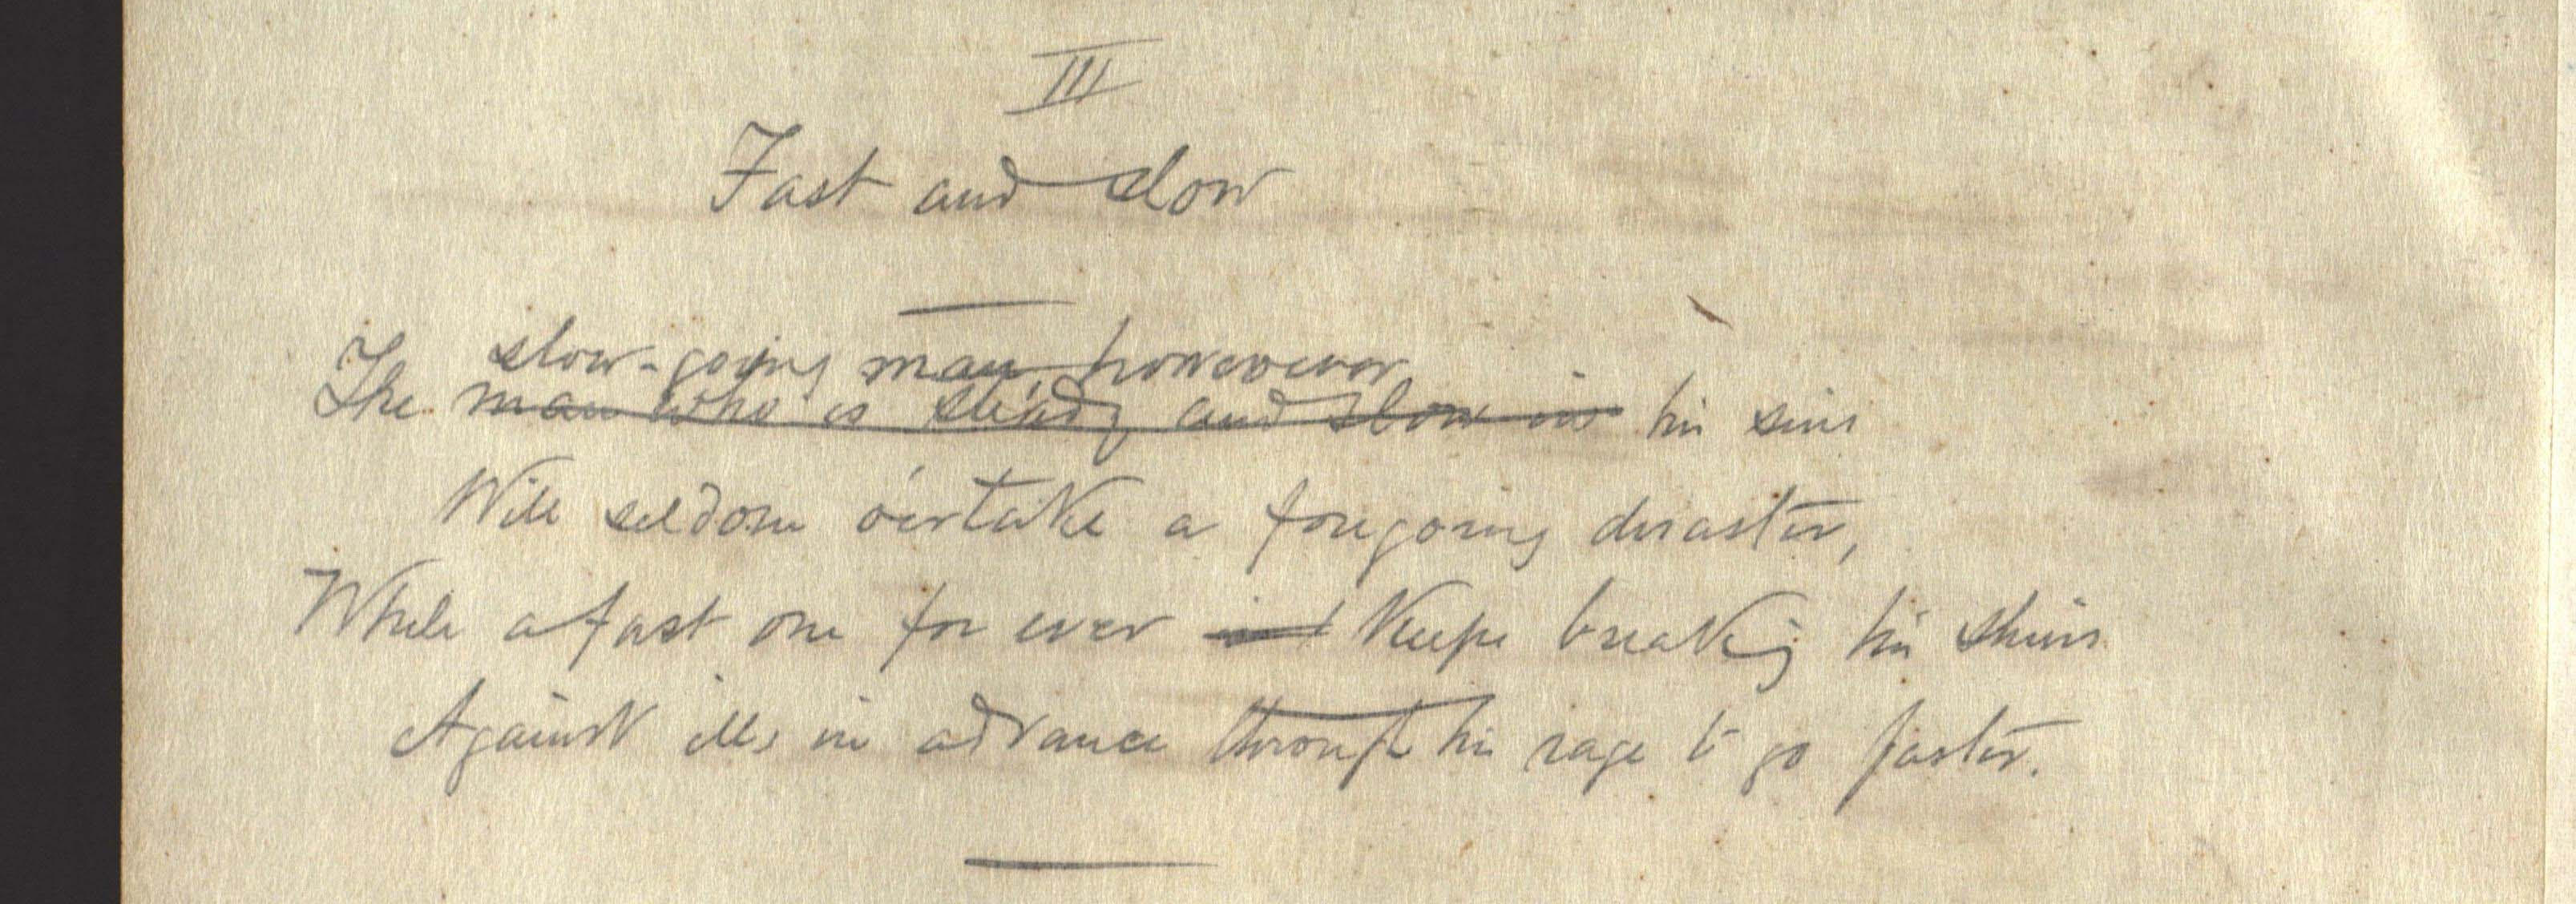 III
Fast and slow
slow-going man, howevever
The man who is steady and slow in his sins
Will seldom o'ertake a foregoing disaster,
While a fast one for ever keeps breaking his shins
Against ills in advance through his rage to go faster.